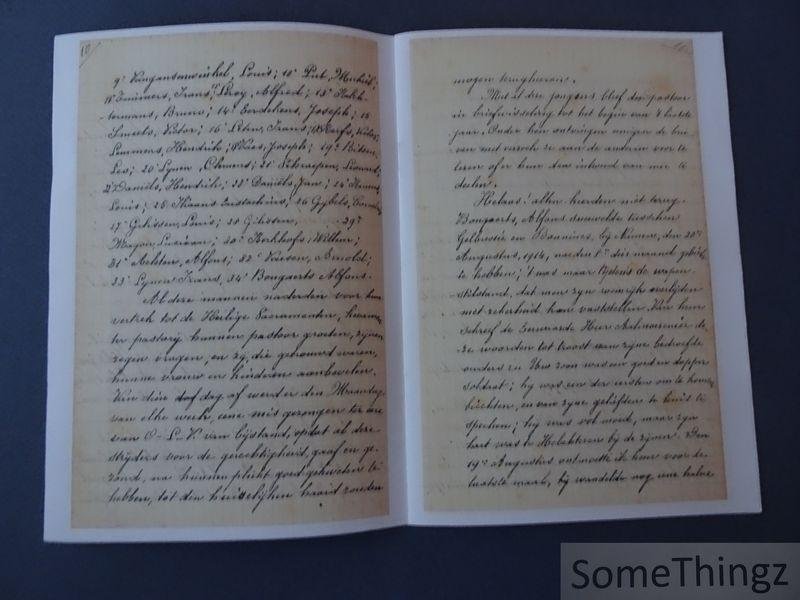 10
9° Vangansewinkel, Louis; 10° Put,
11° Tournmers, Frans; Leroy, Alfred; 13°
termans, Bruno; 14° Eerdekens, Joseph; 15
Smeets, Victor; 16° Leten, Frans;
Lemmens, Hendrik; Joseph; 19° Bitsen
Leo; 20° Lynen, Clemens; 21° Schraepen, Léonard;
22° Daniëls, Hendrik; 23° Daniëls, Jan; 24°
Louis; 25° Eustachius; 26 Gybels,
27° Gilissen, Louis; 28 Gilissen, 29°
Lucien; 30° Kerkhofs, Willem;
31° Aelsten, Alfons; 32° Arnold;
33° Lynen Frans, 34° Bongaerts Alfons.
Al deze mannen naderden voor hun
vertrek tot de Heilige Sacramenten, kwamen
ter pastorij hunnen pastoor groeten, zijnen
zegen vragen, en zij, die getrouwd waren,
hunne vrouw en kinderen aanbevelen.
Van dien dag af werd er den Maandag
van elke week, eene mis gezongen ter eere
van O-L-V. van bijstand, opdat al deze
strijders voor de gerechtigheid, gaaf en ge-
zond, na hunnen plicht goed gekweten te
hebben, tot den huiselijken haard zouden
mogen terugkeeren.
Met al dre jongens bleef den pastoor
in briefwisseling tot het begin van 't
jaar. Onder hen ontvingen eenigen de brie-
ven met verzoek ze aan de anderen voor te
lezen ofer hem den inhoud van mee te
deelen.
Helaas! allen keerden niet terug.
Bongaerts, Alfons sneuvelde tusschen
Gelbressée en Bonnines, bij Namen, den 20n
Augustus, 1914, na den 1n dier maand
te hebben; 't was maar tijdens de wapen-
stilstand, dat men zijn roemrijk overlijden
met zekerheid kon vaststellen. Van hem
schreef de Eerwaarde Heer Aalmoezenier de-
ze woorden tot troost van zijne bedroefde
ouders: Uw zoon was een goed en dapper
soldaat; hij was een der eersten om te komen
biechten, en van zijne geliefden te huis te
spreken; hij was vol moed, maar zijn
hart was te Helchteren bij de zijnen. Den
19n Augustus ontmoette ik hem voor de
laatste maal, hij wandelde nog eene halve
SomeThingz